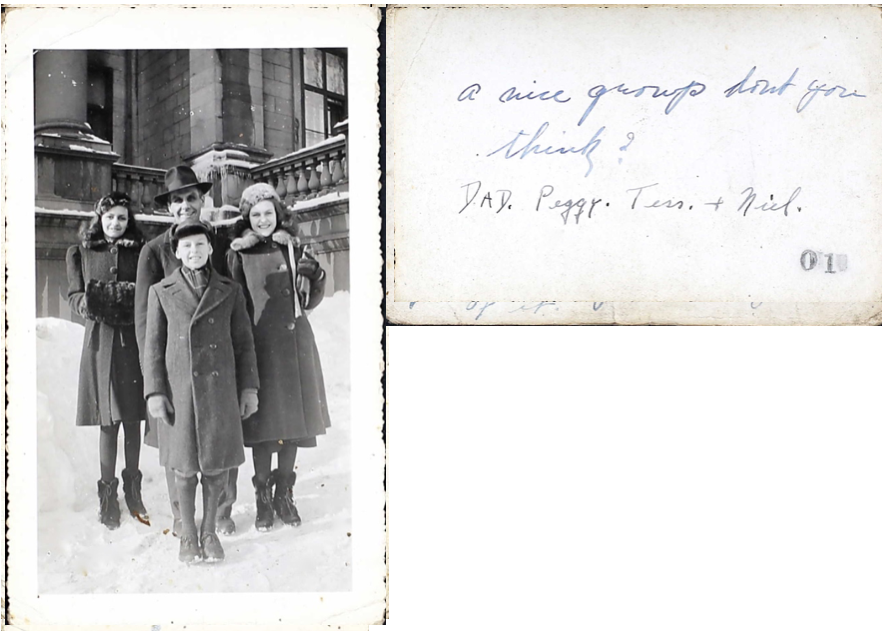 a nice group dont you
think?
DAD. Peggy. Tess. + Niel.
01
of it.